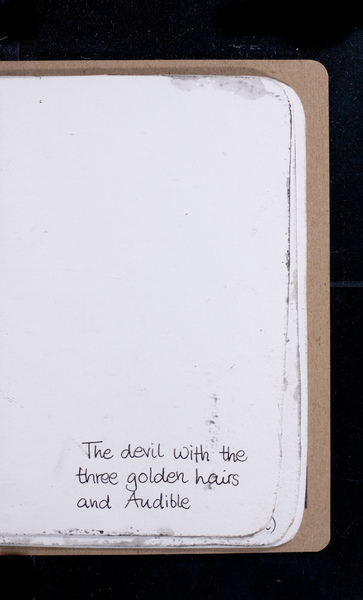 The devil with the
three golden hairs
and Audible